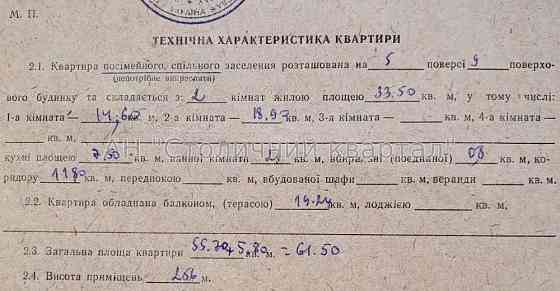 М. П.
ТЕХНІЧНА ХАРАКТЕРИСТИКА КВАРТИРИ
2.1. Квартира посімейного, спільного заселення розташована на 5 поверсі 9 поверхо-
(непотрібне викреслити)
вого будинку та складається з: 2 кімнат жилою площею 33.50 кв. м, у тому числі:
1-а кімната — м, 2-а кімната — 18.97 кв. м, 3-я кімната — кв. м, 4-а кімната —
кв. м,
кухні площею 7.50 кв. м, ванної кімнати кв. м, вбиральні (поєднаної) кв. м, ко-
ридору 11.80 кв. м, передпокою кв. м, вбудованої шафи кв. м, веранди кв. м.
АН "Столичний квартал"
2.2. Квартира обладнана балконом, (терасою) кв. м, лоджією кв. м,
2.3. Загальна площа квартири 55.70+5.80 кв. м. = 61.50
2.4. Висота приміщень 266 м.